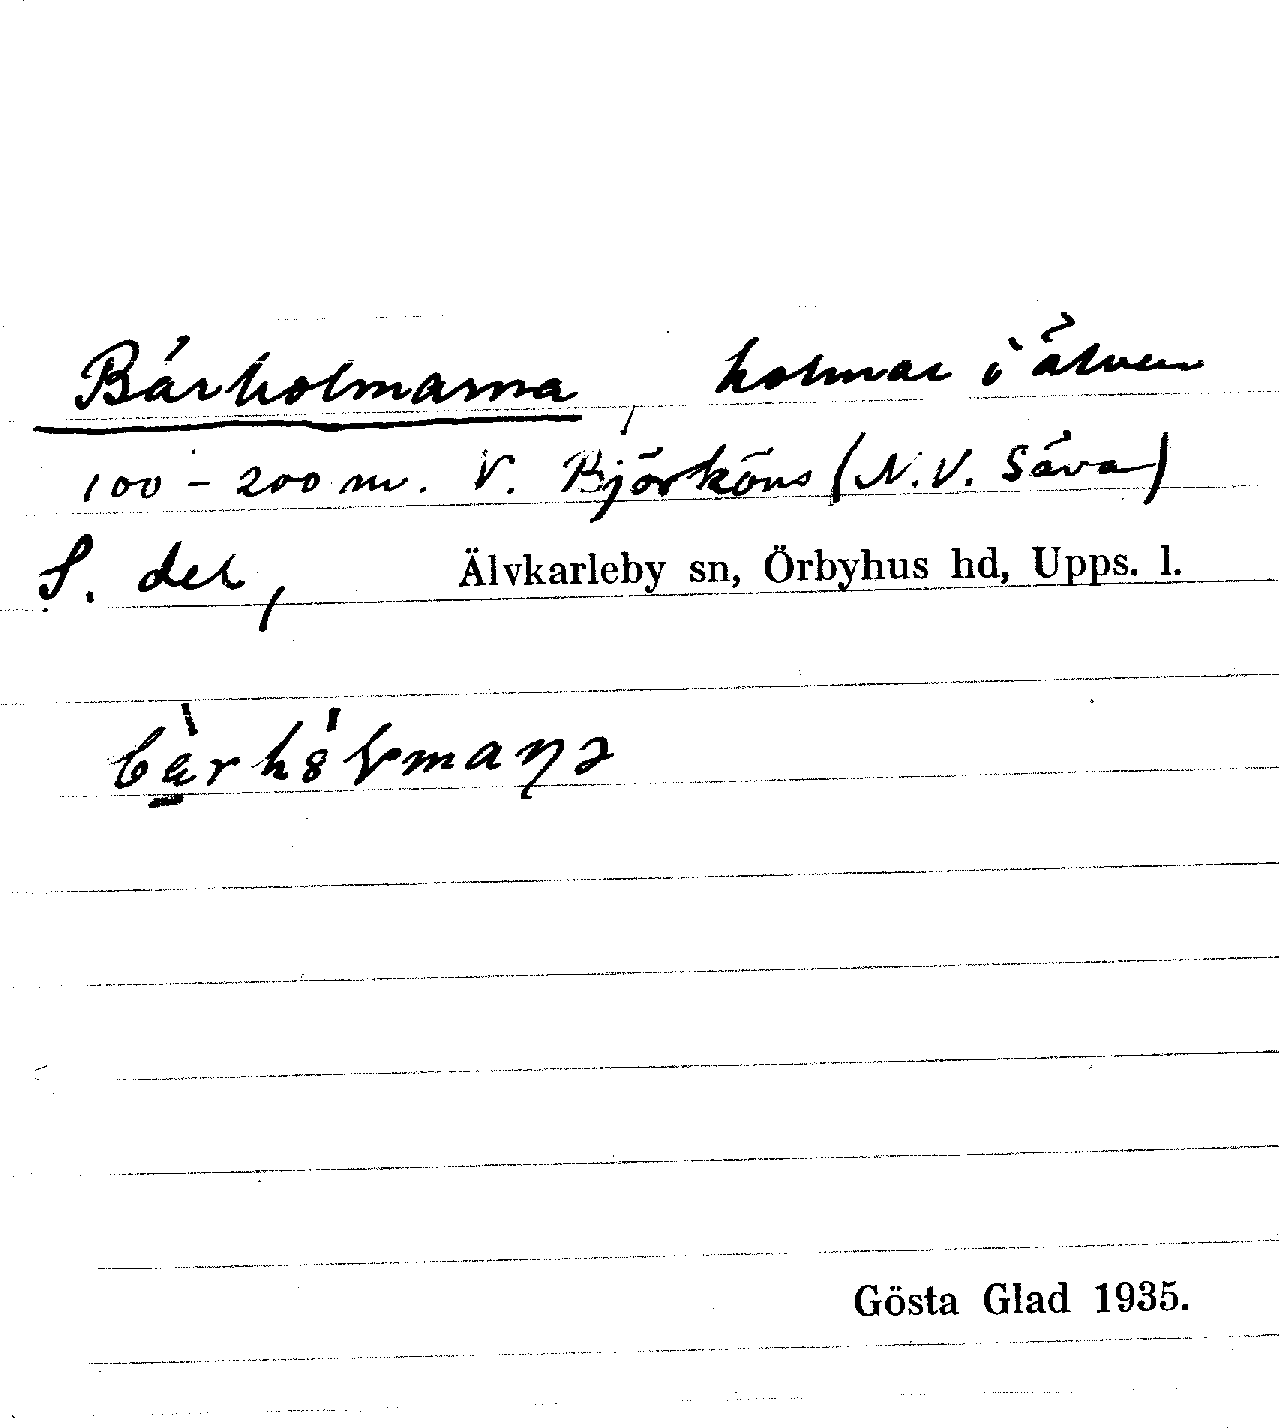 Bärholmarna, holmar i älven
100 - 200 m. V. Björköns (N.V. Säva)
S. del, Älvkarleby sn, Örbyhus hd, Upps. l.
Gösta Glad 1935.